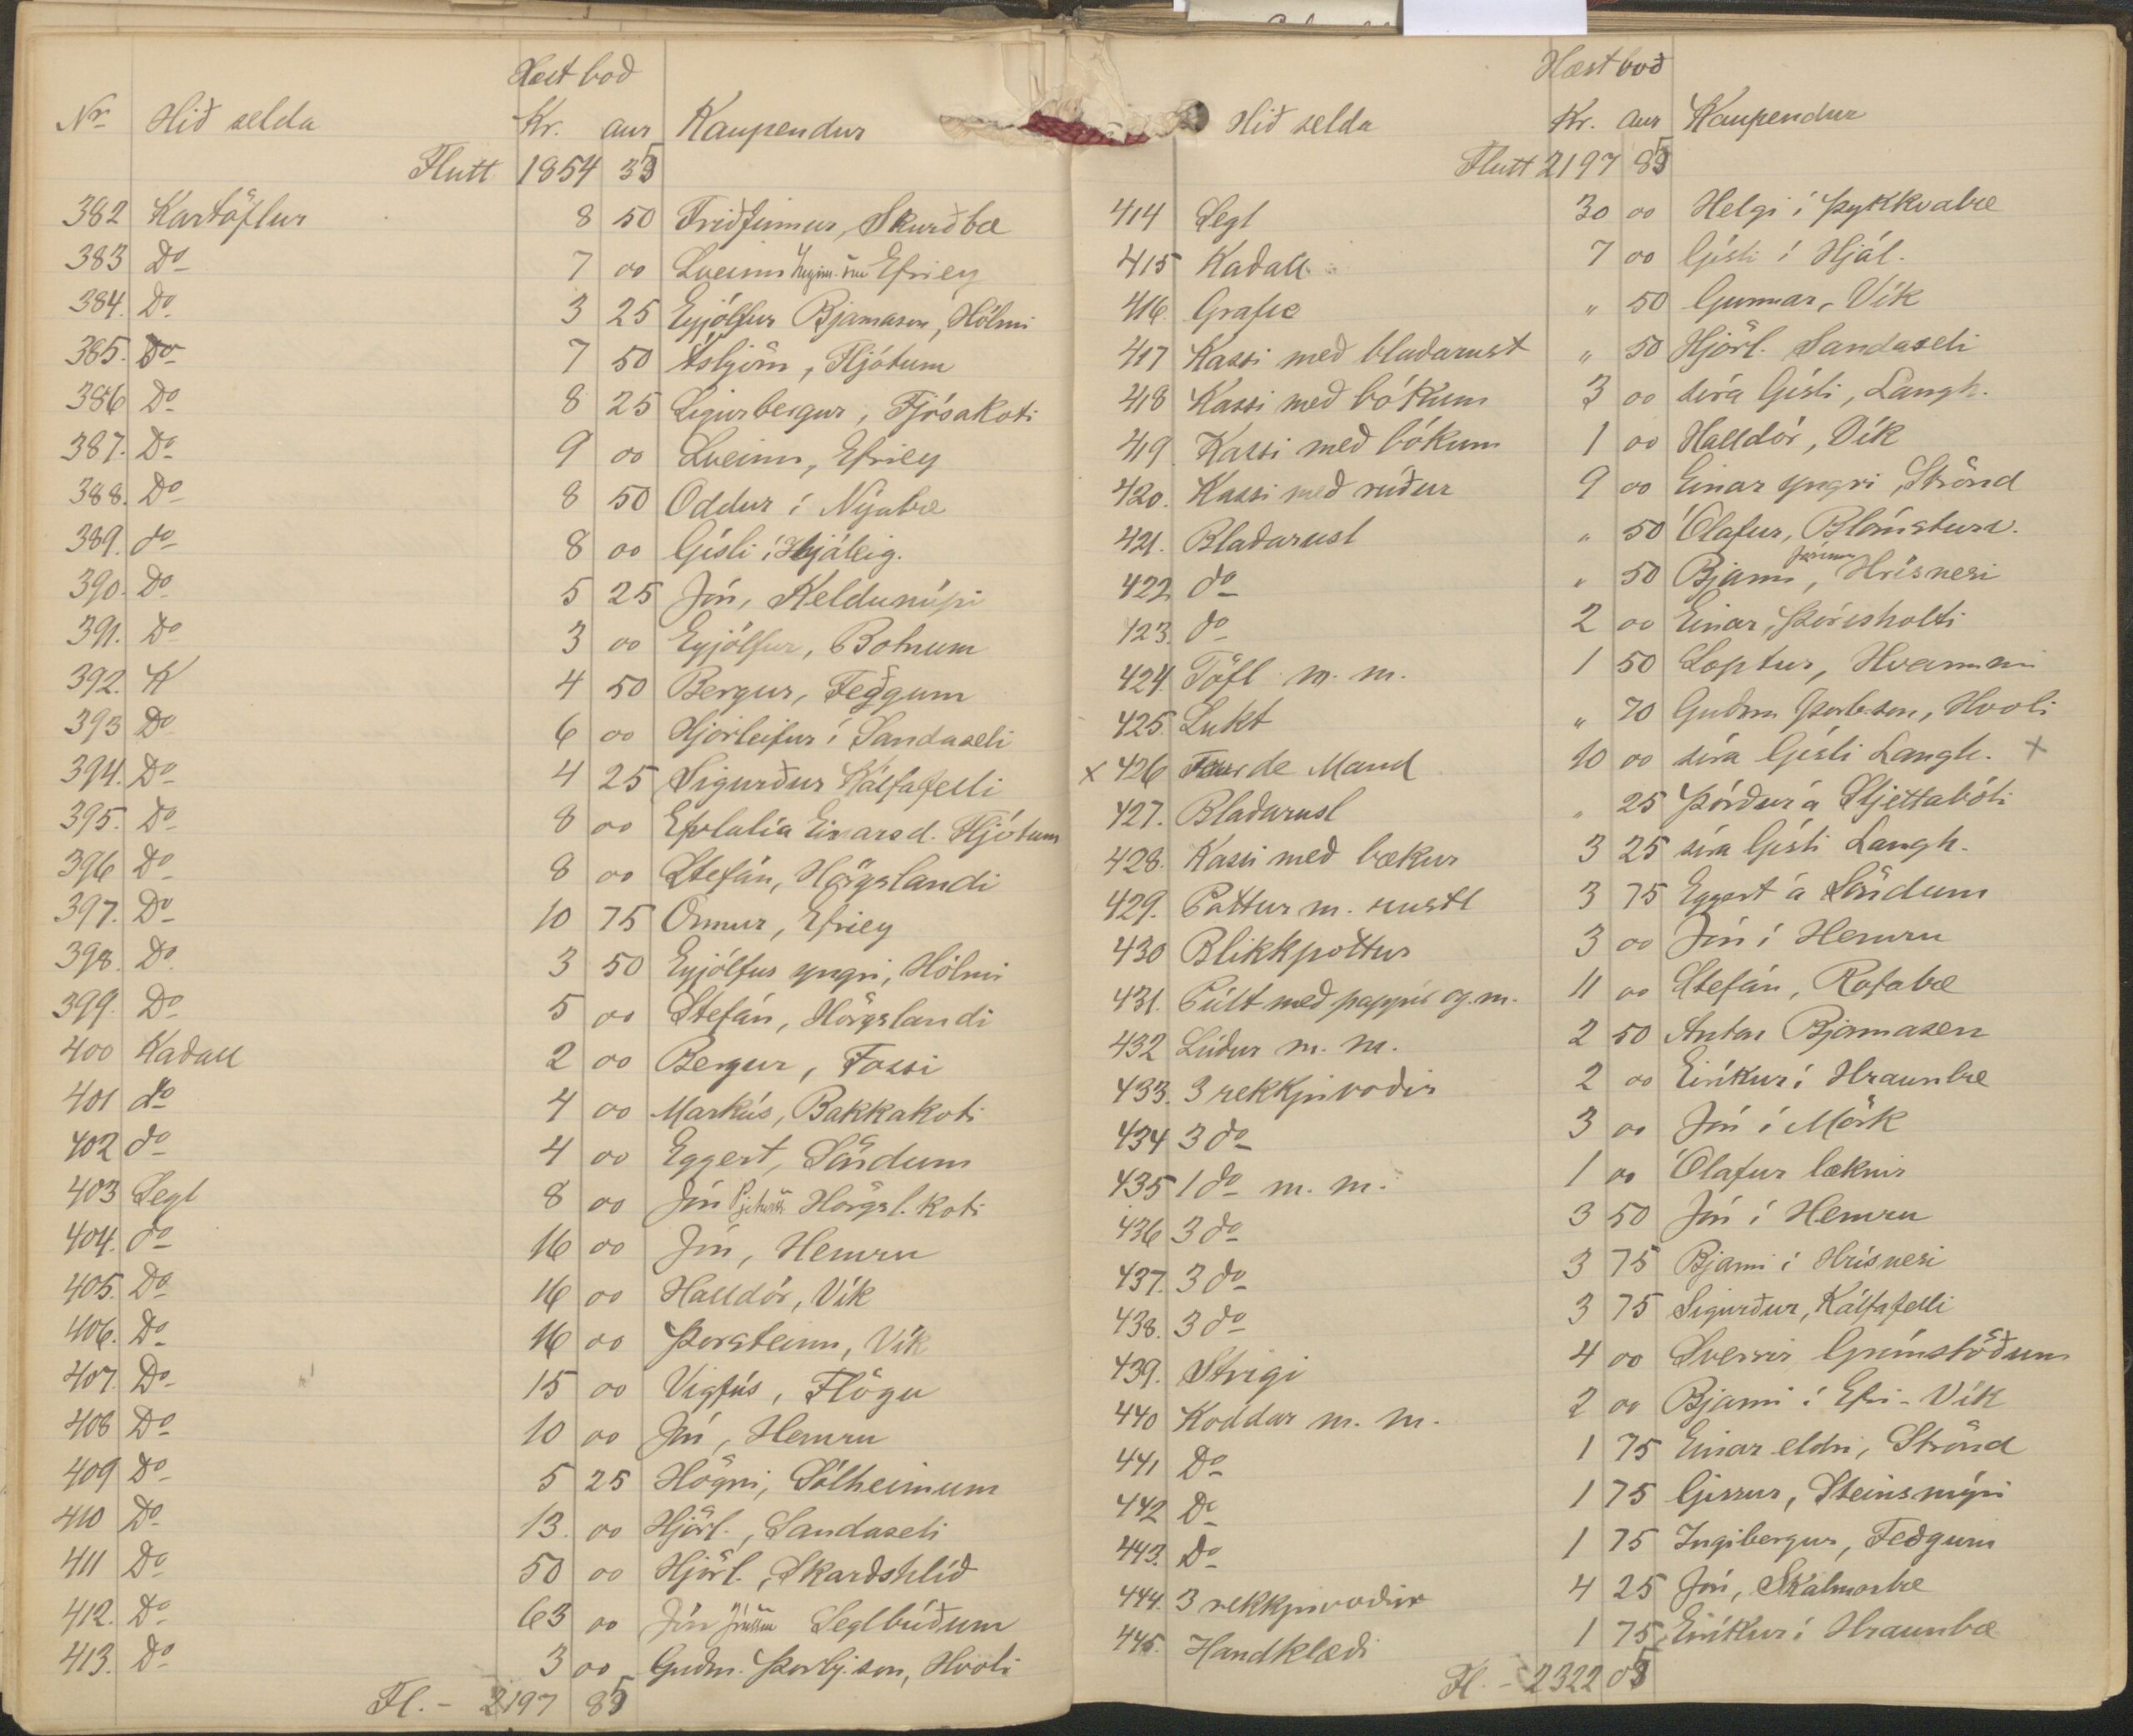 Hæst boð
Nr. Hið selda Kr. aur Kaupendur
Flutt 1854 35
382 Kartöflur 8 50 Friðfinnur, Skurðbæ
383 Do 7 00 Sveinn Efriey
384. Do 3 25 Eyjólfur Bjarnason, Hólmi
385. Do 7 50 Ásbjörn, Fljótum
386 Do 8 25 Sigurbergur, Fjósakoti
387. Do 9 00 Sveinn, Efriey
388. Do 8 50 Oddur í Nýabæ
389. do 8 00 Gísli í Hjáleig.
390. Do 5 25 Jón, Keldunúpi
391. Do 3 00 Eyjólfur, Botnum
392. K 4 50 Bergur, Feðgum
393 Do 6 00 Hjörleifur í Sandaseli
394. Do 4 25 Sigurður Kálfafelli
395. Do 8 00 Einarsd. Fljótum
396 Do 8 00 Stefán, Hörgslandi
397. Do 10 75 Ormur, Efriey
398. Do 3 50 Eyjólfur yngri, Hólmi
399. Do 5 00 Stefán, Hörgslandi
400 Kaðall 2 00 Bergur, Fossi
401 do 4 00 Markús, Bakkakoti
402 do 4 00 Eggert, Söndum
403 Segl 8 00 Jón Hörgsl.koti
404. do 16 00 Jón, Hemru
405. Do 16 00 Halldór, Vík
406. Do 16 00 Þorsteinn, Vík
407. Do 15 00 Vigfús, Flögu
408 Do 10 00 Jón, Hemru
409 Do 5 25 Högni, Sólheimum
410 Do 13. 00 Hjörl., Sandaseli
411 Do 50 00 Hjörl., Skarðshlíð
412. Do 63 00 Jón Jónsson Seglbúðum
413. Do 3 00 Guðm. Þorbj.son, Hvoli
Fl. - 2197 85
Hæst boð
Hið selda Kr. aur Kaupendur
Flutt 2197 85
414 Segl 30 00 Helgi í Þykkvabæ
415 Kaðall 7 00 Gísli í Hjál.
416 " 50 Gunnar, Vík
417 Kassi með blaðarusl " 50 Hjörl. Sandaseli
418 Kassi með bókum 3 00 síra Gísli, Langh.
419. Kassi með bókum 1 00 Halldór, Vík
420. Kassi með rúður 9 00 Einar yngri, Strönd
421. Blaðarusl " 50 Ólafur,
422 do " 50 Bjarni, Hrísnesi
123. do 2 00 Einar, Þórisholti
424. Töfl m. m. 1 50 Loptur, Hvammi
425. Lukt " 70 Guðm Þorb.son, Hvoli
x 426 de Mand 10 00 síra Gísli Langh. x
427. Blaðarusl " 25 Þórður á Fljettabóli
428. Kassi með bækur 3 25 síra Gísli Langh.
429. Pottur m. rusli 3 75 Eggert á Söndum
430 Blikkpottur 3 00 Jón í Hemru
431. Púlt með pappír og.m. 11 00 Stefán, Rofabæ
432 Lúður m. m. 2 50 Anton Bjarnasen
433. 3 rekkjuvoðir 2 00 Eiríkur í Hraunbæ
434 3 do 3 00 Jón í Mörk
435 1 do m. m. 1 00 Ólafur læknir
436 3 do 3 50 Jón í Hemru
437. 3 do 3 75 Bjarni í Hrísnesi
438. 3 do 3 75 Sigurður, Kálfafelli
439. Strigi 4 00 Sverrir Grímstöðum
440 Koddar m. m. 2 00 Bjarni í Efri-Vík
441 Do 1 75 Einar eldri, Strönd
442 Do 1 75 Gissur, Steinsmýri
443. Do 1 75 Ingibergur, Feðgum
444. 3 rekkjuvoðir 4 25 Jón, Skálmarbæ
445. Handklæði 1 75 Eiríkur í Hraunbæ
Fl. - 2322 05